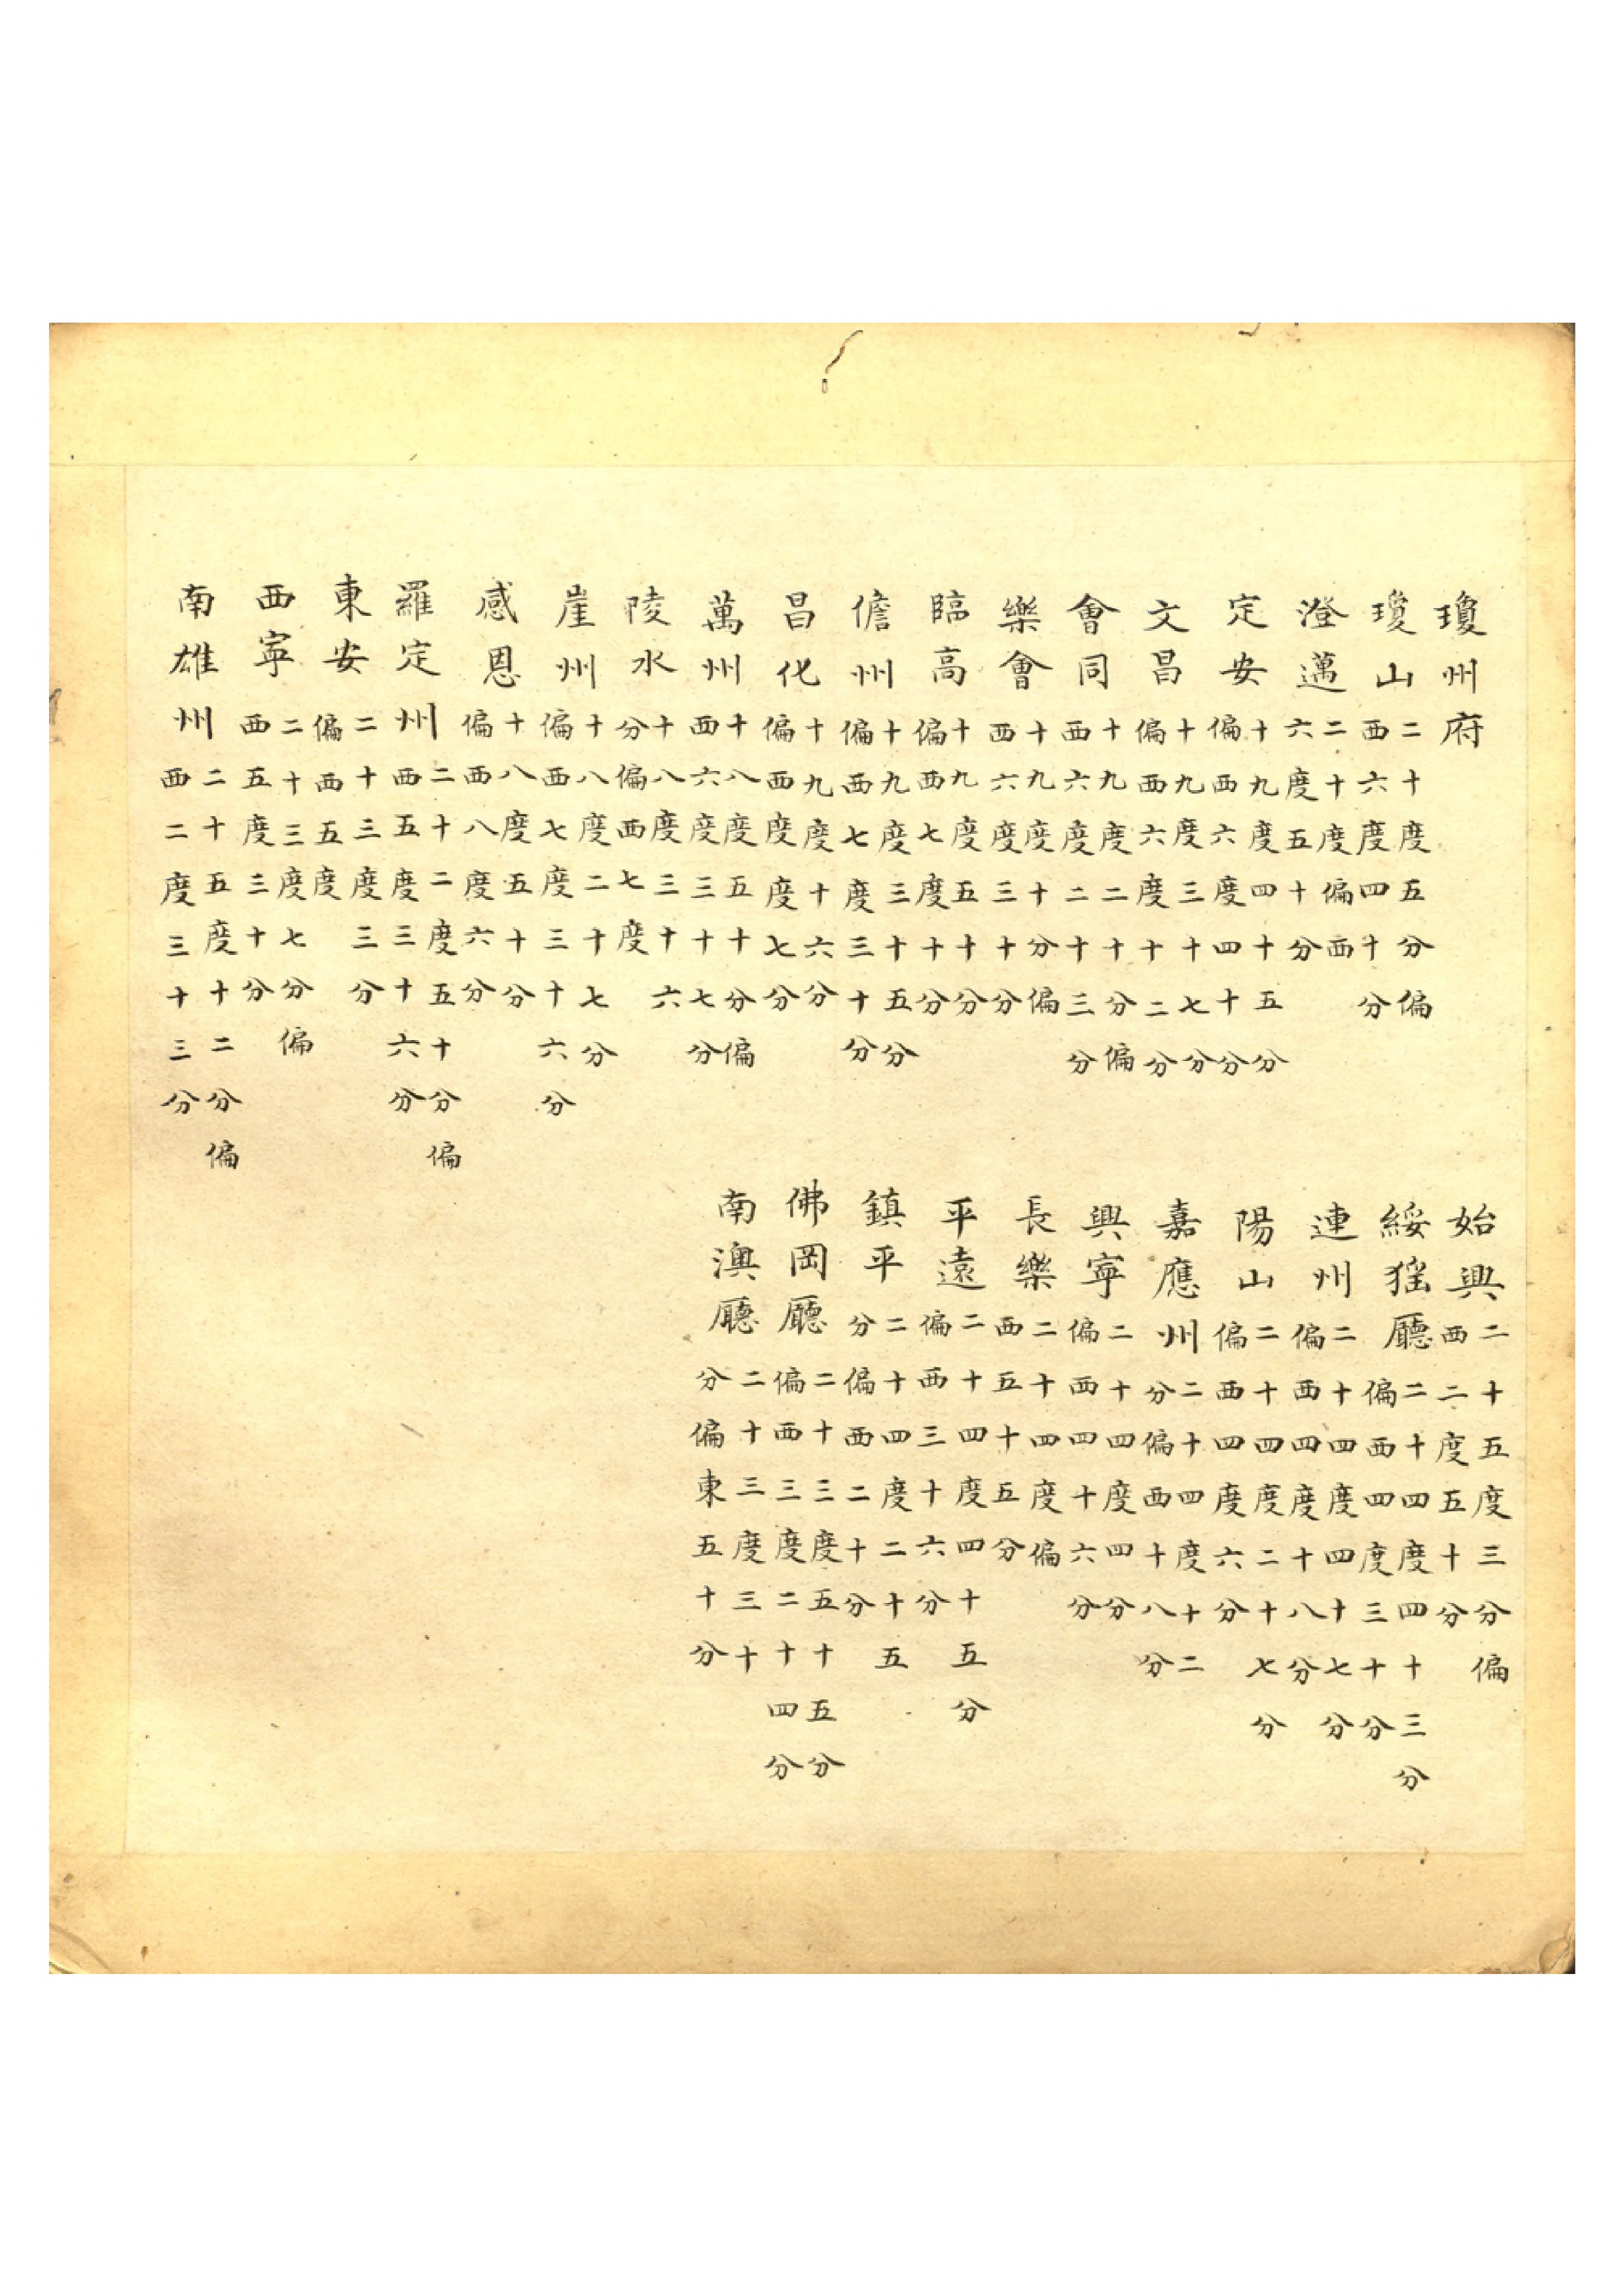 瓊州府
瓊山 二十度五分偏西六度四十分
澄邁 二十度偏西六度五十分
定安 十九度四十五分偏西六度四十分
文昌 十九度三十七分偏西六度十二分
會同 十九度二十分偏西六度二十三分
樂會 十九度十分偏西六度三十分
臨高 十九度五十分偏西七度十分
儋州 十九度三十五分偏西七度三十分
昌化 十九度十六分偏西度度七分
萬州 十八度五十分偏西六度三十七分
陵水 十八度三十六分偏西七度
崖州 十八度二十七分偏西七度三十六分
感恩 十八度五十分偏西八度六分
羅定州 二十二度五十分偏西五度三十六分
東安 二十三度三分偏西五度
西寧 二十三度七分偏西五度三十分
南雄州 二十五度十二分偏西二度三十三分
始興 二十五度三分偏西二度五十分
綏猺廳 二十四度四十三分偏西四度三十分
連州 二十四度四十七分偏西四度十八分
陽山 二十四度二十七分偏西四度六分
嘉應州 二十四度十二分偏西十八分
興寧 二十四度四分偏西四十六分
長樂 二十四度偏西五十五分
平遠 二十四度四十五分偏西三十六分
鎮平 二十四度二十五分偏西二十分
佛岡廳 二十三度五十五分偏西三度二十四分
南澳廳 二十三度三十分偏東五十分